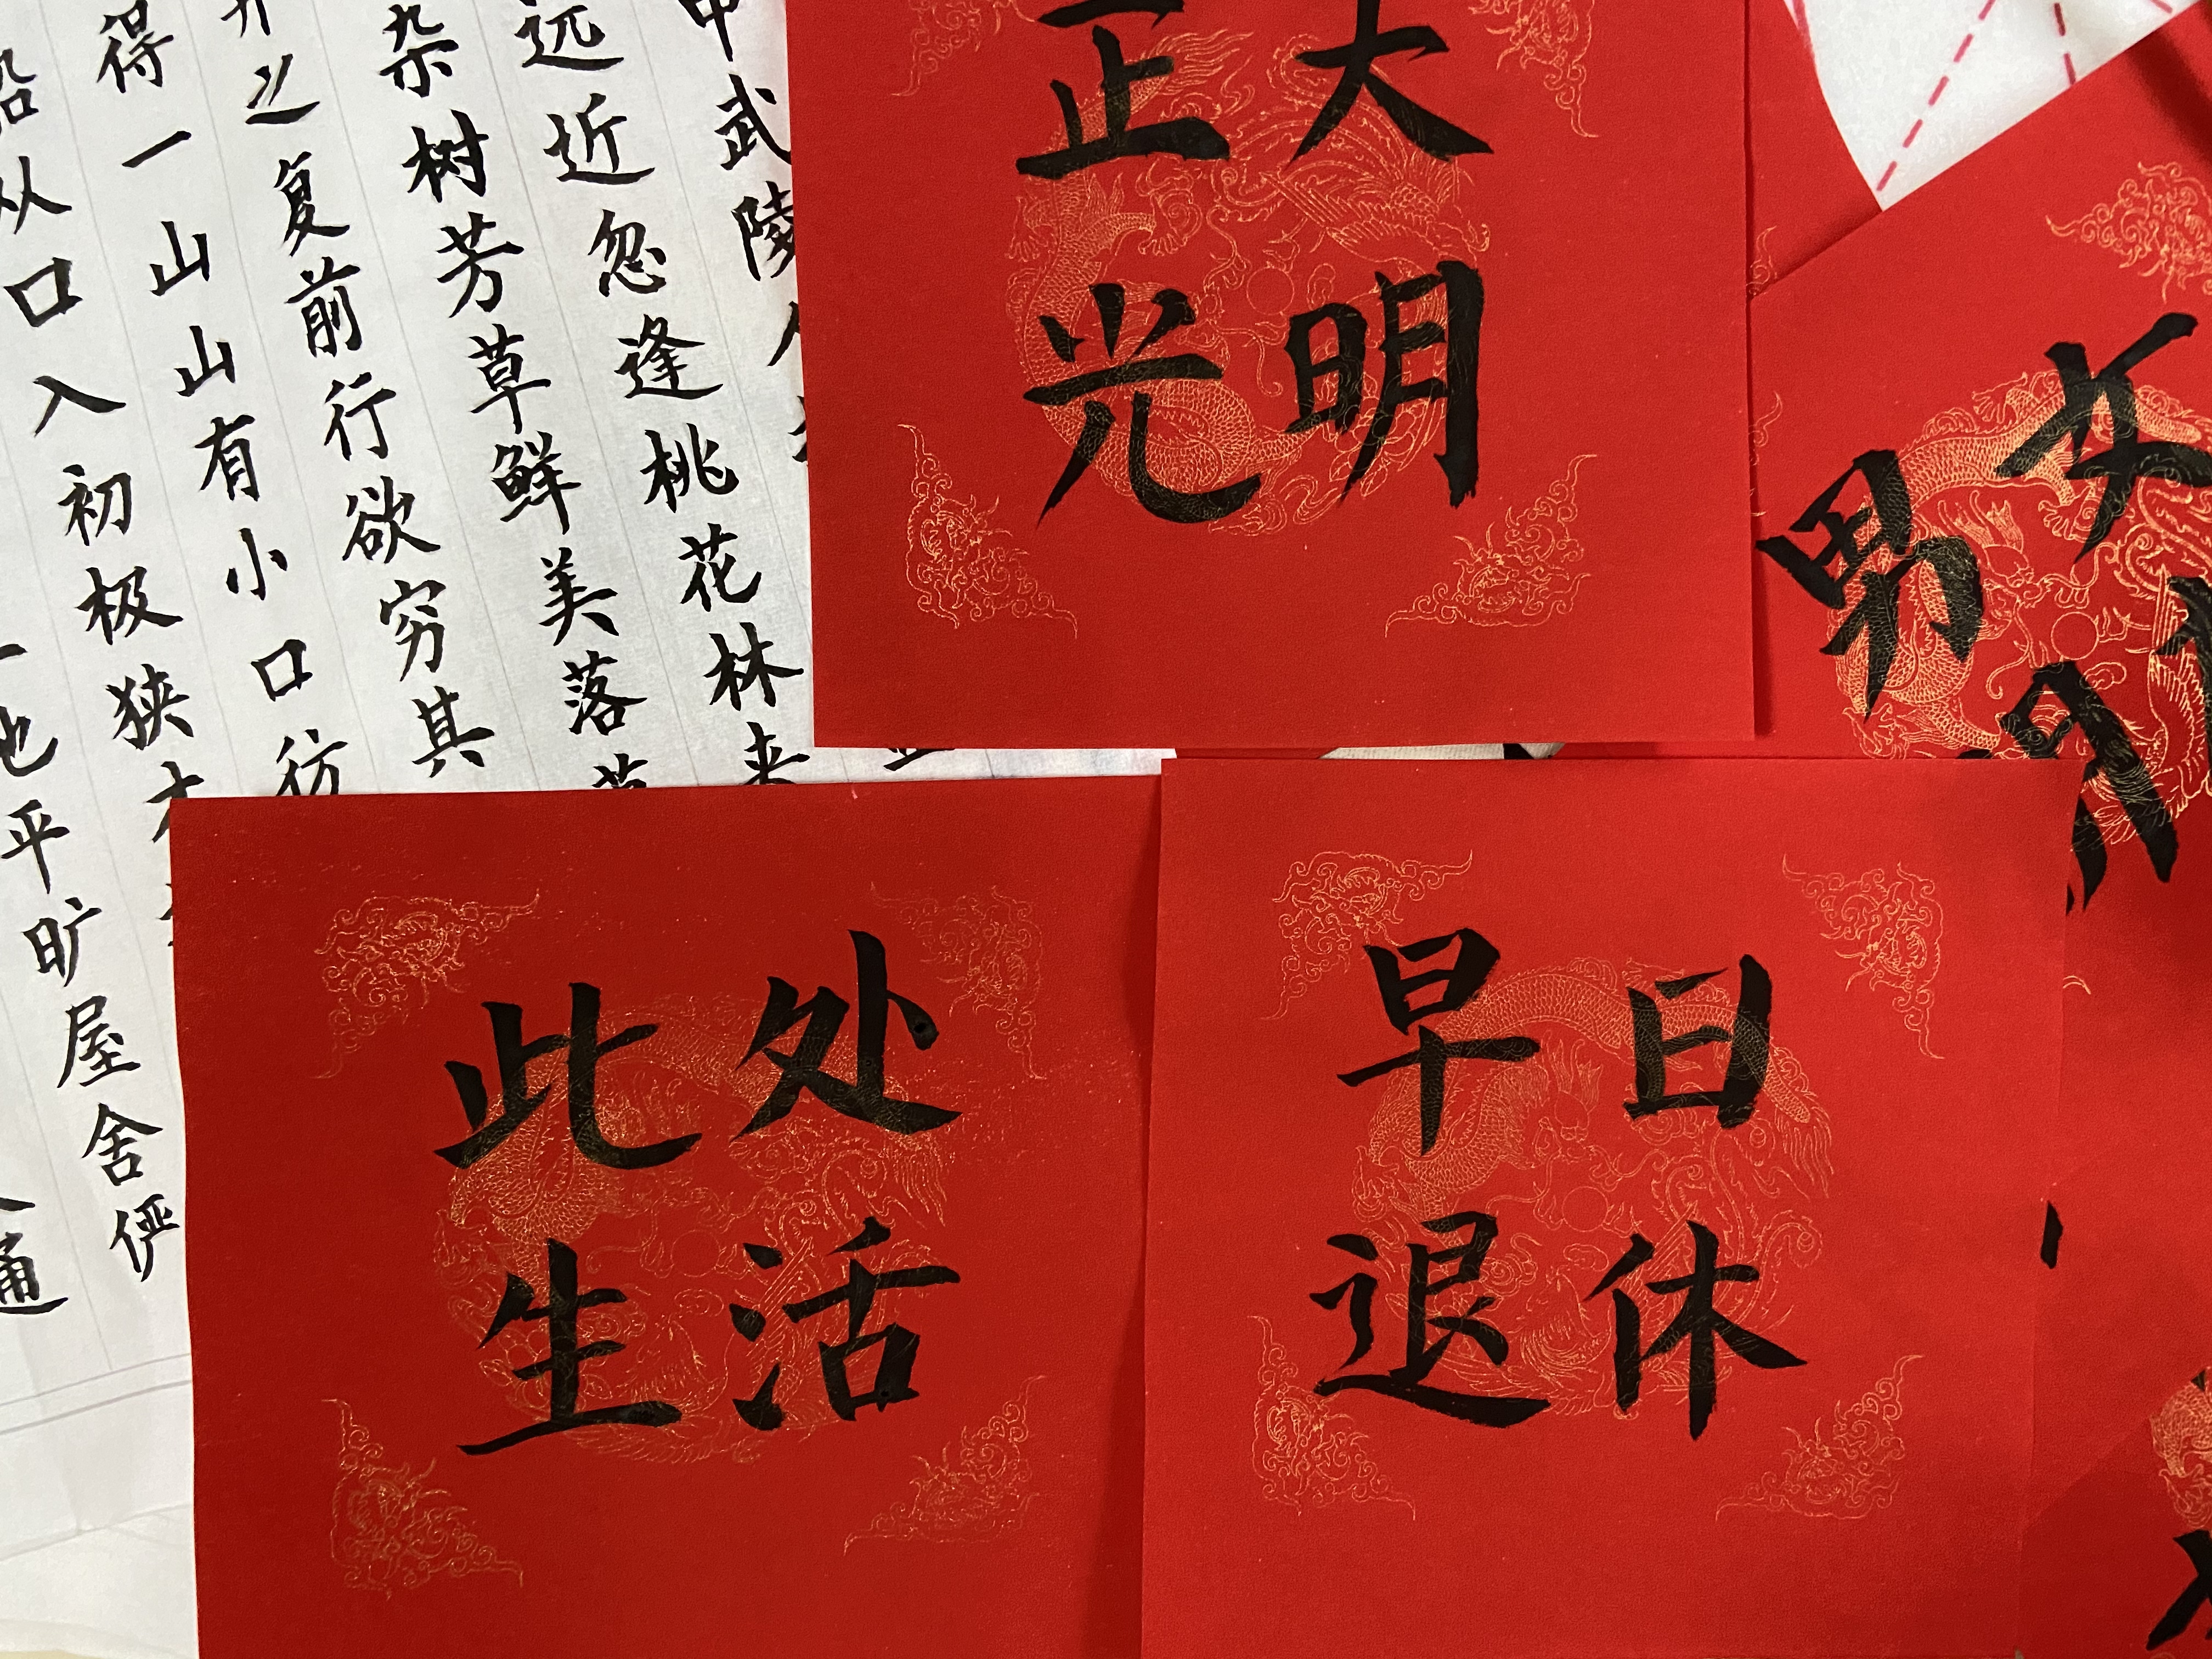 中武陵
远近忽逢桃花林夹
杂树芳草鲜美落
之复前行欲穷其
得一山山有小口彷
船从口入初极狭才
地平旷屋舍俨
通
正大
光明
男女
此处
生活
早日
退休